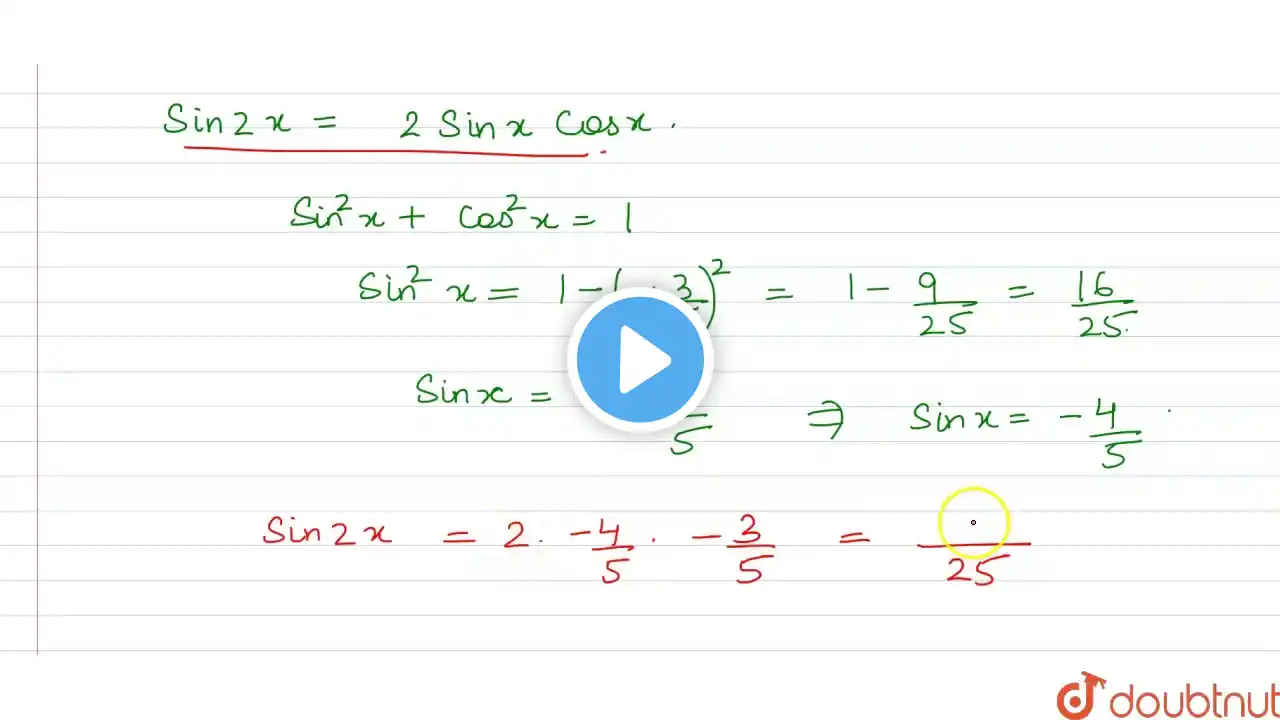 Sin2x = 2 Sinx Cosx.
Sin²x + cos²x = 1
Sin²x = 1 - ( 3 )² = 1 - 9/25 = 16/25.
Sinx = 5 ⇒ Sinx = -4/5
Sin2x = 2. -4/5 . -3/5 = /25
doubtnut